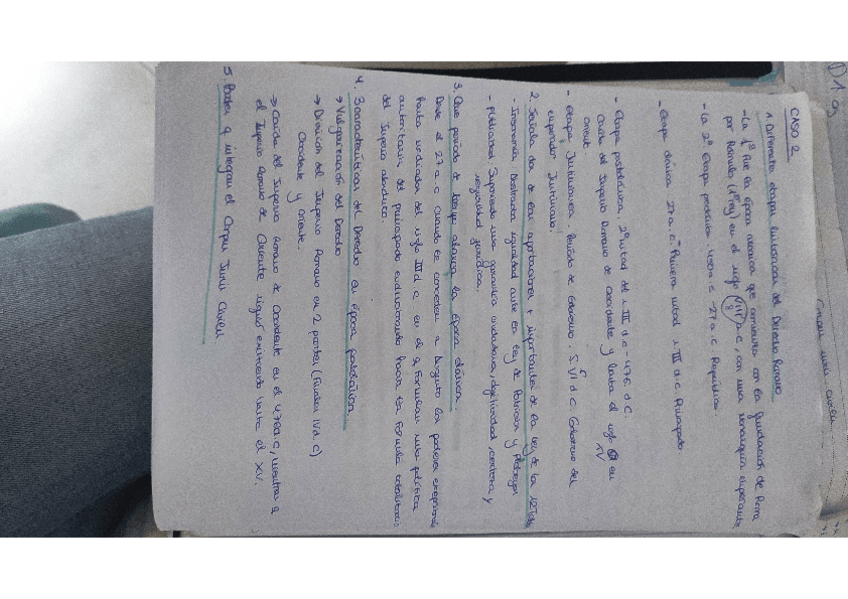 CASO 2
1. Diferentes etapas históricas del Derecho Romano
- La 1ª fue la época arcaica que comienza con la fundación de Roma
por Rómulo (1er rey) en el siglo VIII a.c, con una monarquía imperante
- La 2ª Etapa preclásica. 450 a.c - 27 a.c República.
- Etapa clásica 27 a.c - Primera mitad s. III d.c Principado
- Etapa postclásica, 2ª mitad del s. III d.c - 476 d.C.
Caída del Imperio Romano de Occidente y hasta el siglo XV en
oriente
- etapa Justinianea. Periodo de Gobierno. S. VI d.C. Gobierno del
emperador Justiniano.
2. Señala dos de las aportaciones + importantes de la ley de las 12 Tablas
- Isonomía. igualdad ante la ley de Patricios y plebeyos
- publicidad. Suponiendo una garantía ciudadana, objetividad, certeza y
seguridad jurídica.
3. Que período de tiempo abarca la época clásica
Desde el 27 a.c cuando se conceden a Augusto los poderes
hasta mediados del siglo III d.c en el q formulan una política
autoritaria del principado evolucionando hacia la formula
del Imperio absoluto.
4. 3 características del Derecho en época postclásica
→ Vulgarización del Derecho
→ División del Imperio Romano en 2 partes (finales IV d.C)
Occidente y oriente.
→ Caída del Imperio Romano de Occidente en el 476 d.C, mientras q
el Imperio Romano de Oriente siguió existiendo hasta el XV.
5. Partes q integran el Corpus Iuris Civilis